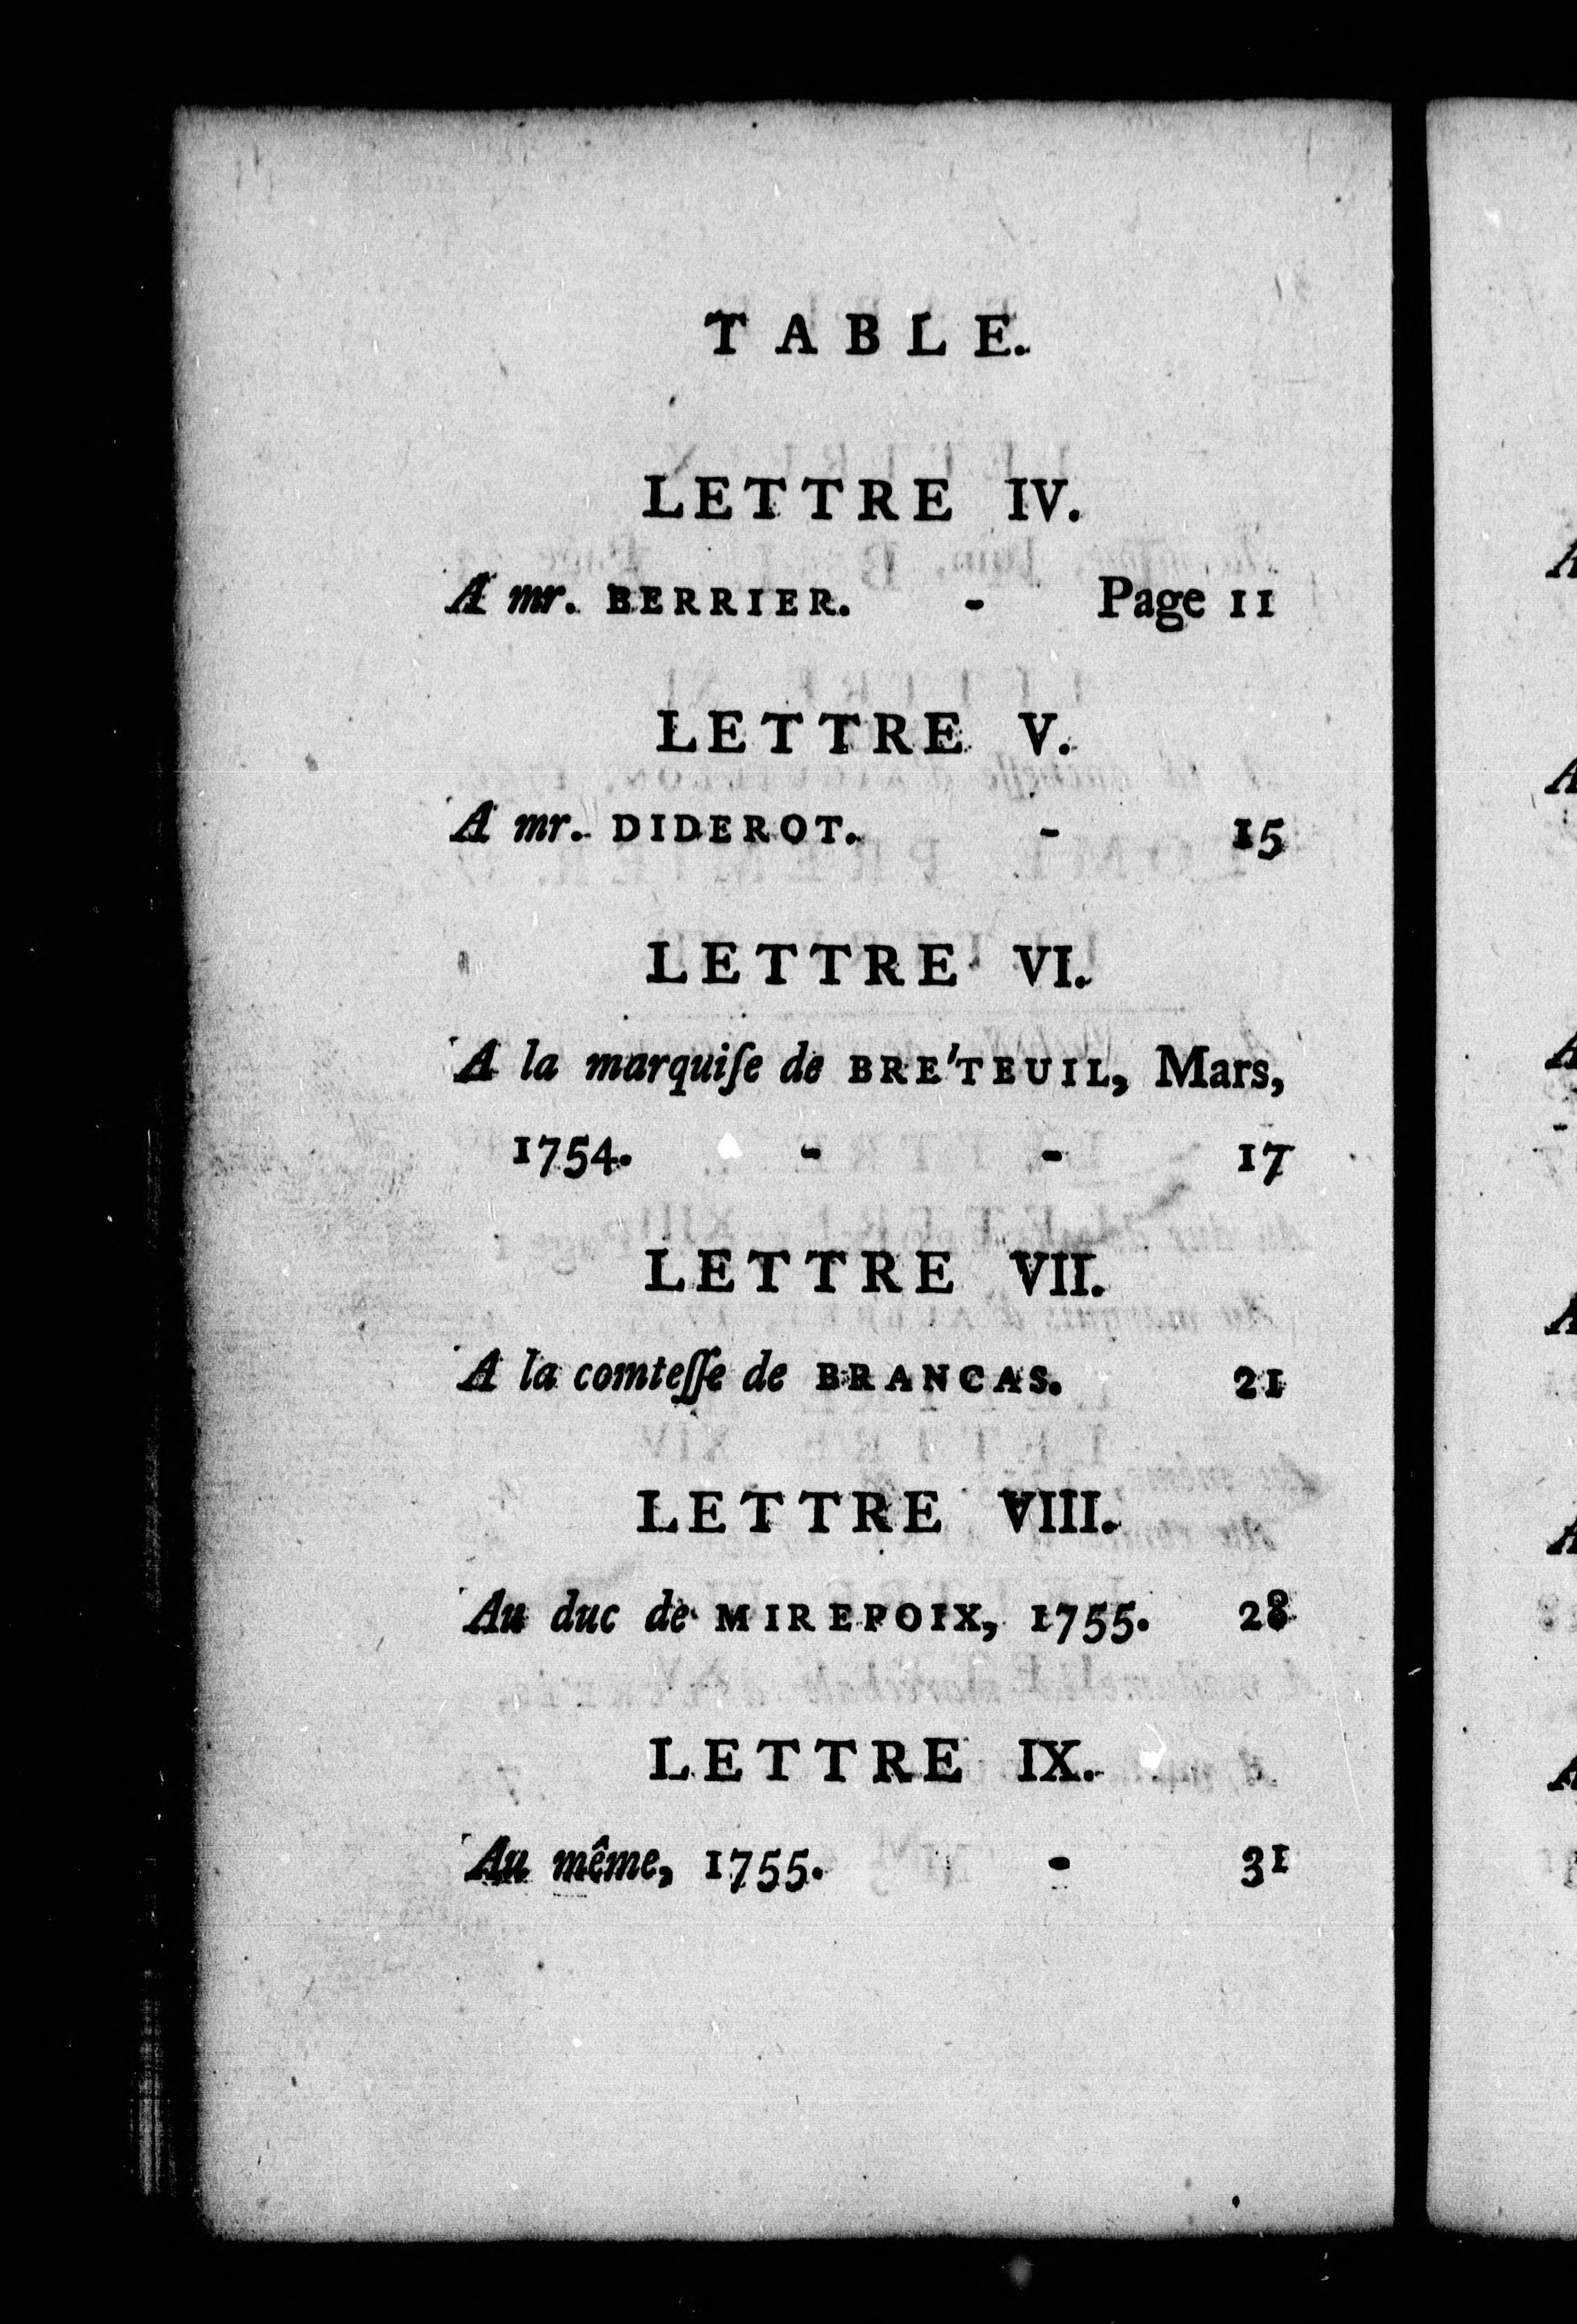 TABLE.
LETTRE IV.
A mr. BERRIER. - Page 11
LETTRE V.
A mr. DIDEROT. - 15
LETTRE VI.
A la marquiſe de BRE'TEUIL, Mars,
1754. - - 17
LETTRE VII.
A la comteſſe de BRANCAS. 21
LETTRE VIII.
Au duc de MIREPOIX, 1755. 28
LETTRE IX.
Au même, 1755. - 31